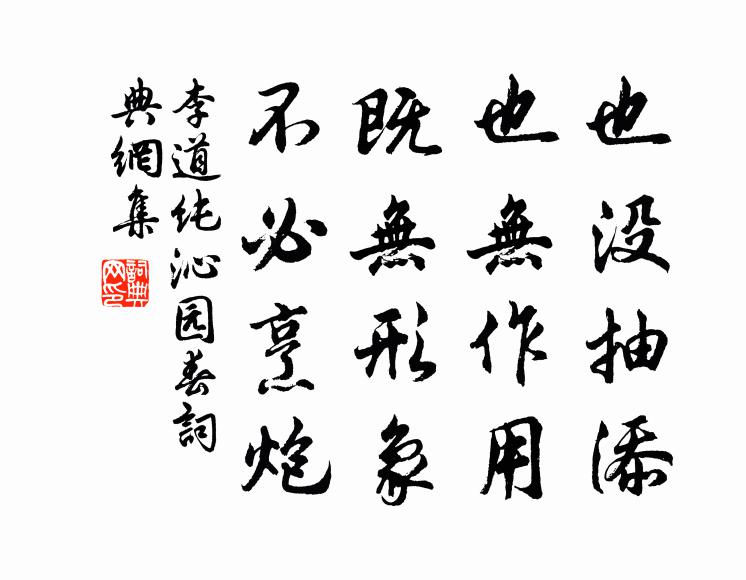 也没抽添
也無作用
既無形象
不必烹炮
李道纯沁园春詞
典網集
詞典网印